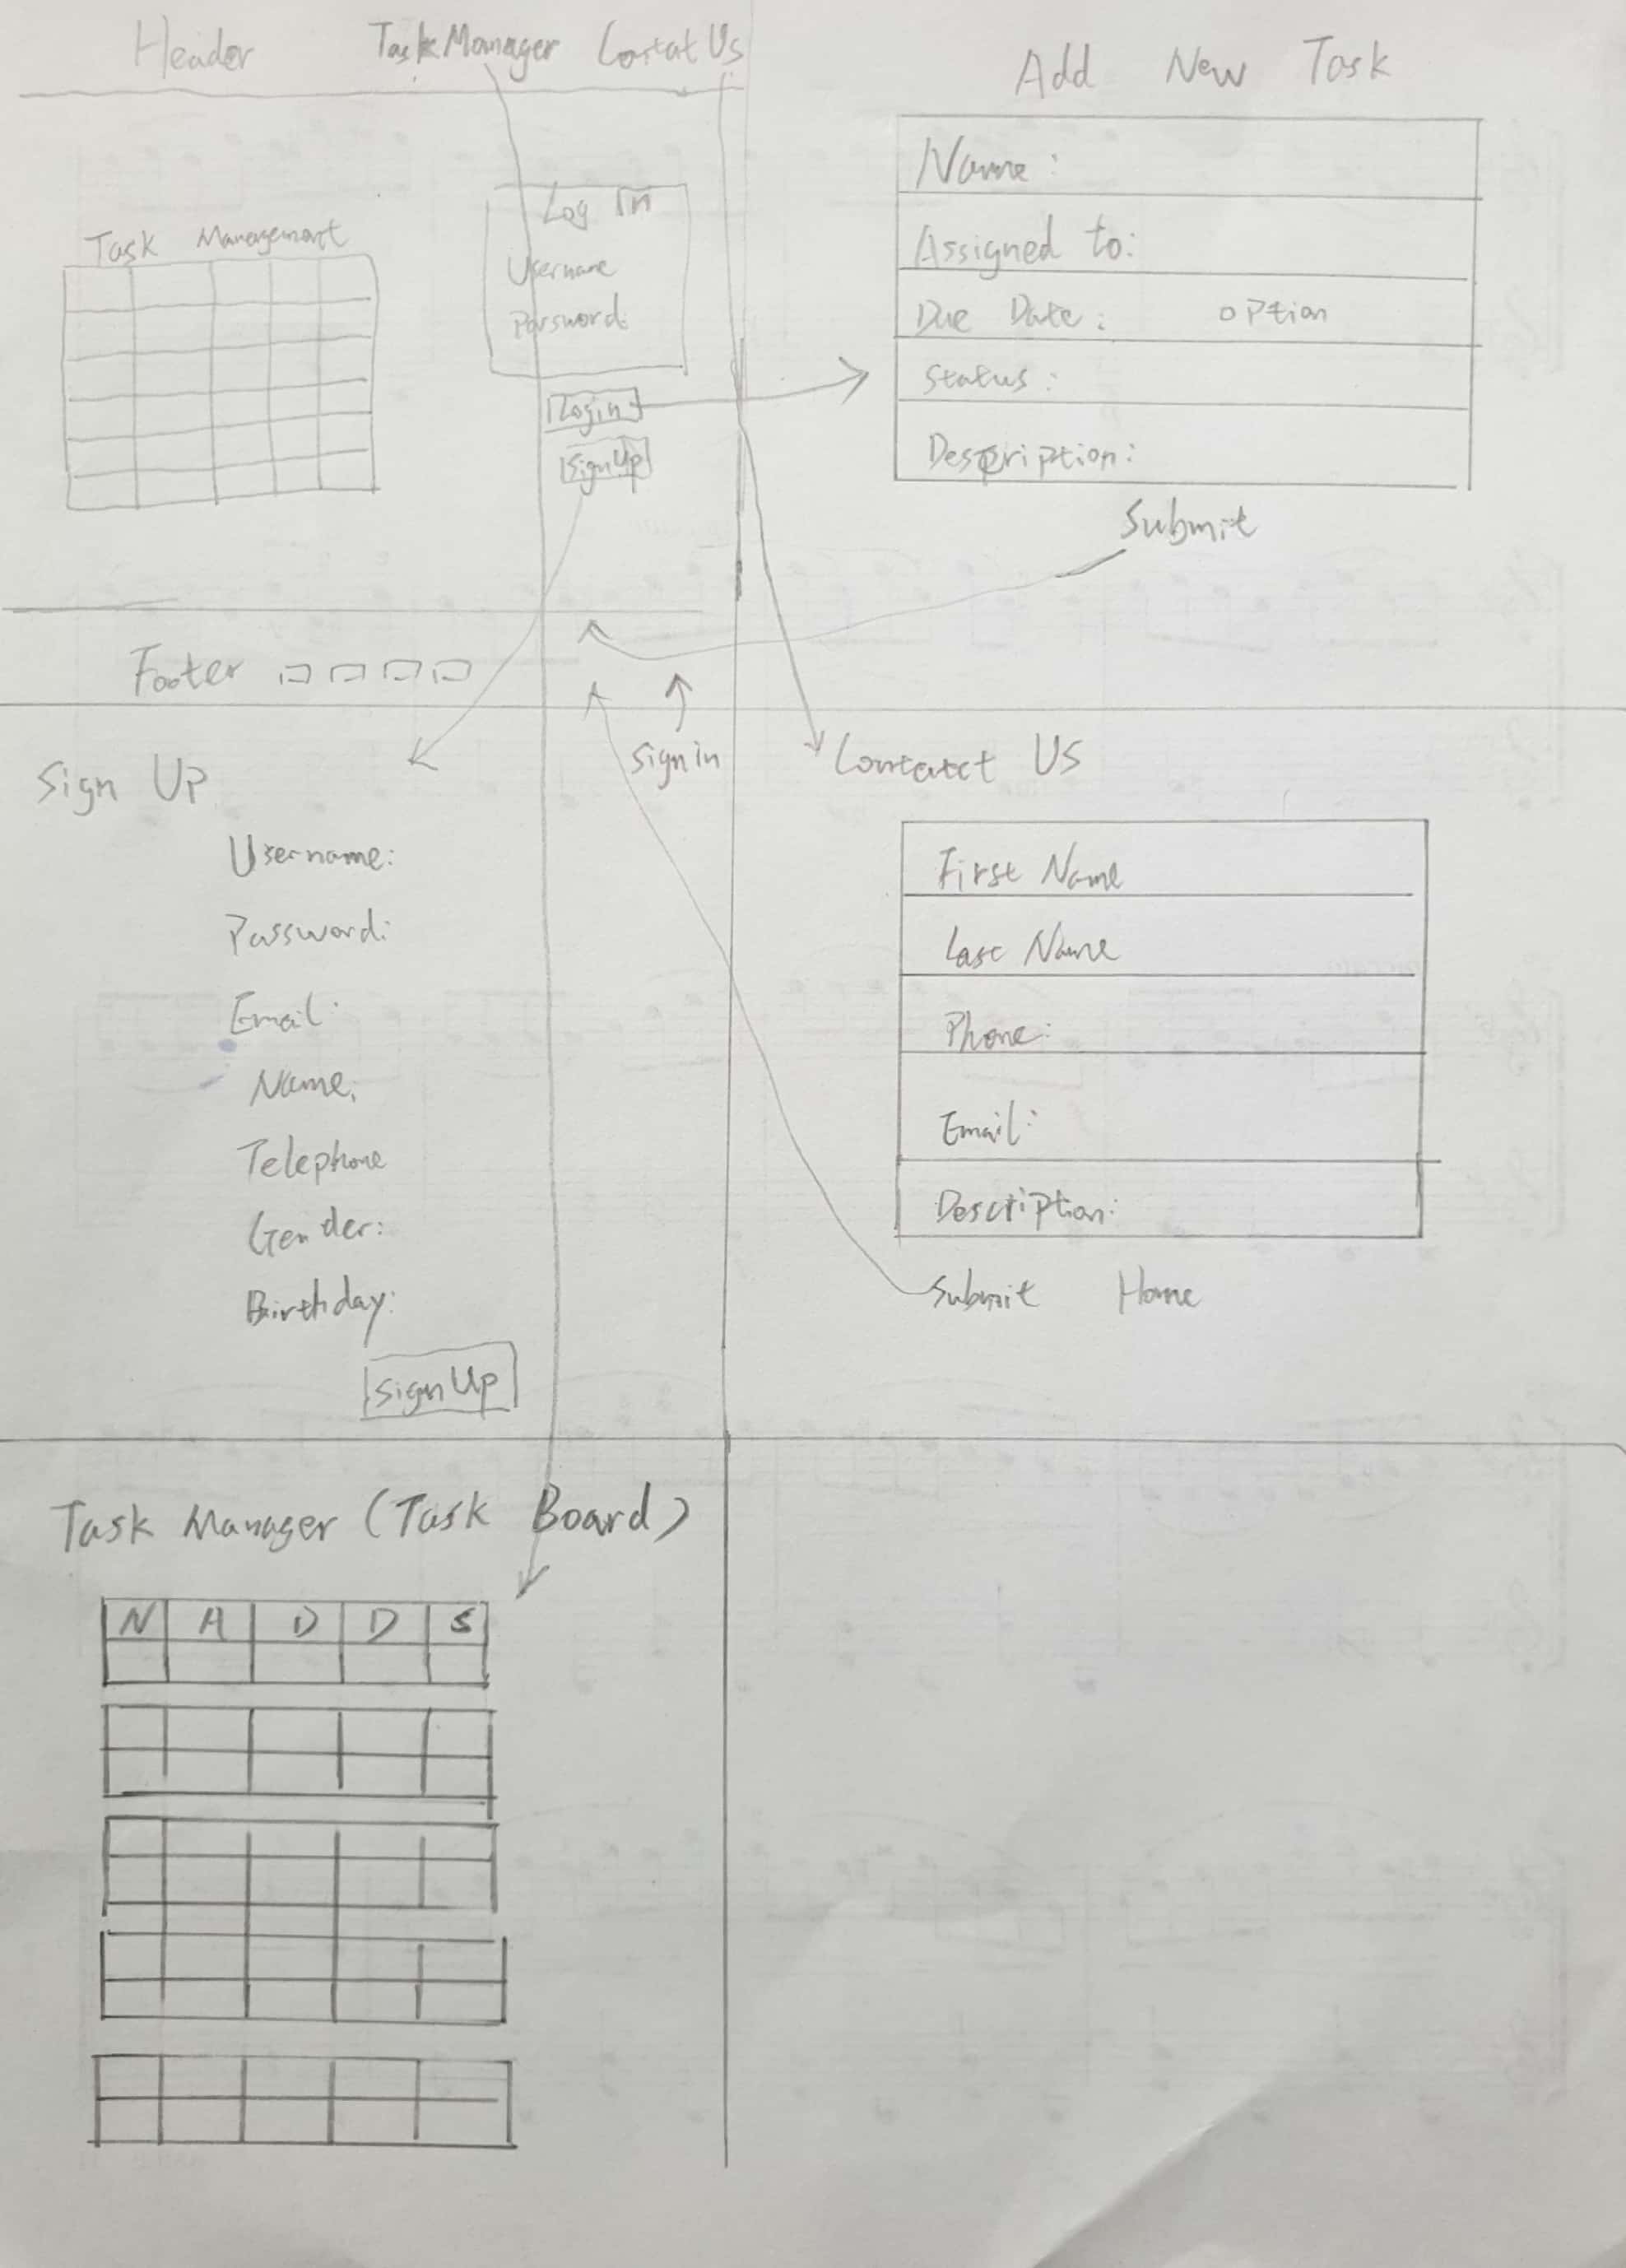 Header Task Manager Contat Us
Task Management
Log In
Username
Password:
Login
Sign Up
Footer
Add New Task
Name:
Assigned to:
Due Date: option
Status:
Description:
Submit
Sign in
Sign Up
Username:
Password:
Email:
Name:
Telephone
Gender:
Birthday:
Sign Up
Contatct US
First Name
Last Name
Phone:
Email:
Description:
Submit Home
Task Manager (Task Board)
N A D D S